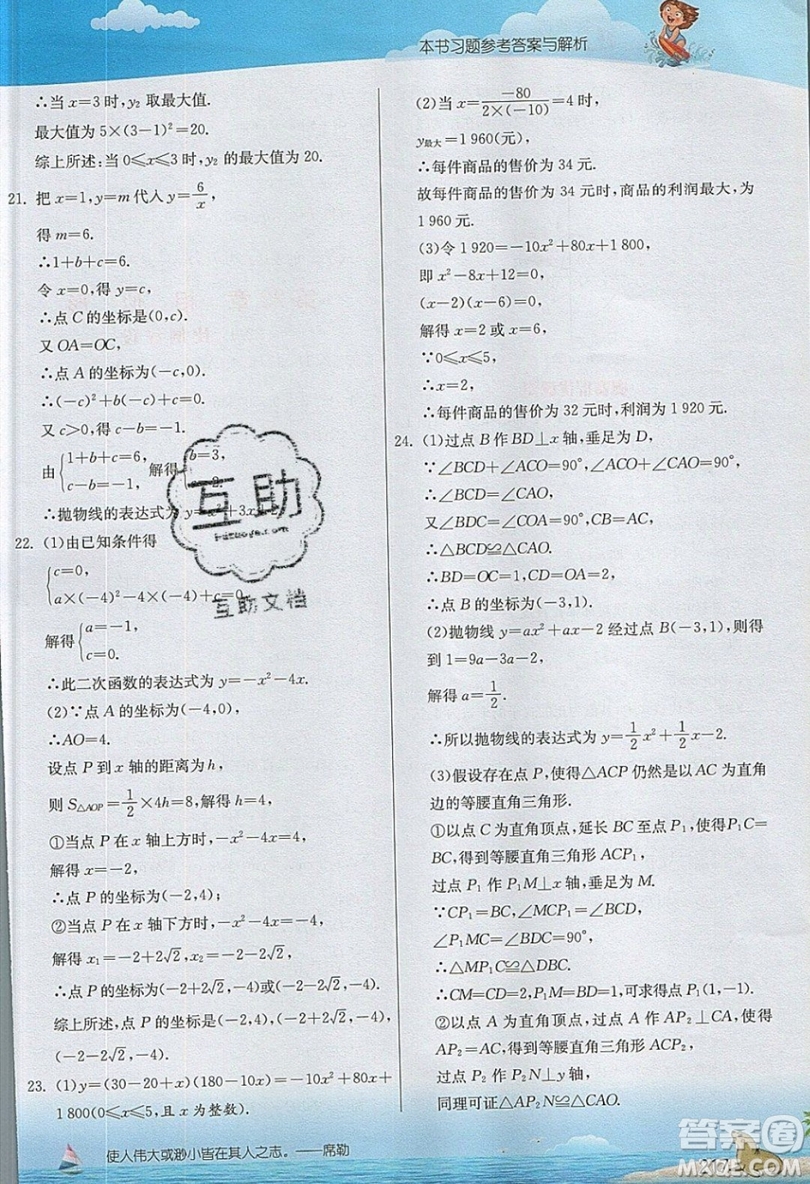 本书习题参考答案与解析
∴当 x=3 时, y₂ 取最大值.
最大值为 5×(3-1)²=20.
综上所述:当 0⩽x⩽3 时, y₂ 的最大值为 20.
21. 把 x=1, y=m 代入 y=6/x,
得 m=6.
∴1+b+c=6.
令 x=0, 得 y=c,
∴点 C 的坐标是(0,c).
又 OA=OC,
∴点 A 的坐标为(-c,0).
∴(-c)²+b(-c)+c=0.
又 c>0, 得 c-b=-1.
由{1+b+c=6, c-b=-1. 解得{b=3, c=2.
∴抛物线的表达式为 y=x²+3x+2.
22. (1)由已知条件得
{c=0
a×(-4)²-4×(-4)+c=0.
解得{a=-1,
c=0.
∴此二次函数的表达式为 y=-x²-4x.
(2)∵点 A 的坐标为(-4,0),
∴AO=4.
设点 P 到 x 轴的距离为 h,
则 S△AOP=1/2×4h=8,解得 h=4,
①当点 P 在 x 轴上方时,-x²-4x=4,
解得 x=-2,
∴点 P 的坐标为(-2,4);
②当点 P 在 x 轴下方时,-x²-4x=-4,
解得 x₁=-2+2√2, x=-2-2√2,
∴点 P 的坐标为(-2+2√2,-4)或(-2-2√2,-4)
综上所述,点 P 的坐标为(-2,4)或(-2+2√2,-4)或
(-2-2√2,-4).
23. (1)y=(30-20+x)(180-10x)=-10x²+80x+
1 800(0⩽x⩽5,且 x 为整数).
(2)当 x=-80/2×(-10)=4 时,
y最大=1 960(元),
∴每件商品的售价为 34 元.
故每件商品的售价为 34 元时,商品的利润最大,为
1 960 元.
(3)令 1 920=-10x²+80x+1 800,
即 x²-8x+12=0,
(x-2)(x-6)=0,
解得 x=2 或 x=6,
∵0⩽x⩽5,
∴x=2,
∴每件商品的售价为 32 元时,利润为 1 920 元.
24. (1)过点 B 作 BD⊥x 轴,垂足为 D,
∵∠BCD+∠ACO=90°,∠ACO+∠CAO=90°,
∴∠BCD=∠CAO,
又∠BDC=∠COA=90°, CB=AC,
∴△BCD≌△CAO,
∴BD=OC=1, CD=OA=2,
∴点 B 的坐标为(-3,1).
(2)抛物线 y=ax²+ax-2 经过点 B(-3,1),则得
到 1=9a-3a-2,
解得 a=1/2.
∴所以抛物线的表达式为 y=1/2x²+1/2x-2.
(3)假设存在点 P,使得△ACP 仍然是以 AC 为直角
边的等腰直角三角形.
①以点 C 为直角顶点,延长 BC 至点 P₁,使得 P₁C
=BC,得到等腰直角三角形 ACP₁,
过点 P₁ 作 P₁M⊥x 轴,垂足为 M.
∵CP₁=BC,∠MCP₁=∠BCD,
∠P₁MC=∠BDC=90°,
∴△MP₁C≌△DBC.
∴CM=CD=2, P₁M=BD=1,可求得点 P₁(1,-1).
②以点 A 为直角顶点,过点 A 作 AP₂⊥CA,使得
AP₂=AC,得到等腰直角三角形 ACP₂,
过点 P₂ 作 P₂N⊥y 轴,垂足为 N,
同理可证△AP₂N≌△CAO.
使人伟大或渺小皆在其人之志。——席勒
217
互助
hutaoye.com
互助文档
答案圈